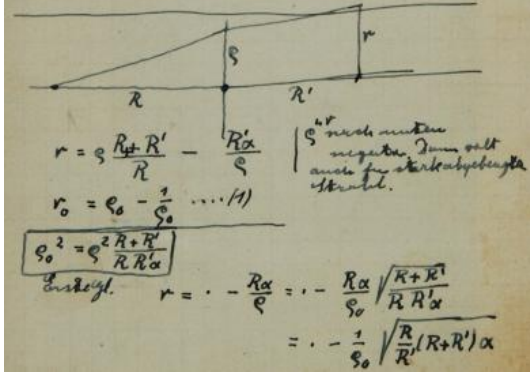 ρ r
R R'
r = ρ (R + R')/R − R'α/ρ
ρ, r nach unten
negativ. Dann gilt
auch für stark abgebeugten
Strahl.
r₀ = ρ₀ − 1/ρ₀ ....(1)
ρ₀² = ρ² (R + R')/(R R'α)
r = · − Rα/ρ = · − Rα/ρ₀ √((R + R')/(R R'α))
= · − 1/ρ₀ √(R/R' (R+R') α)